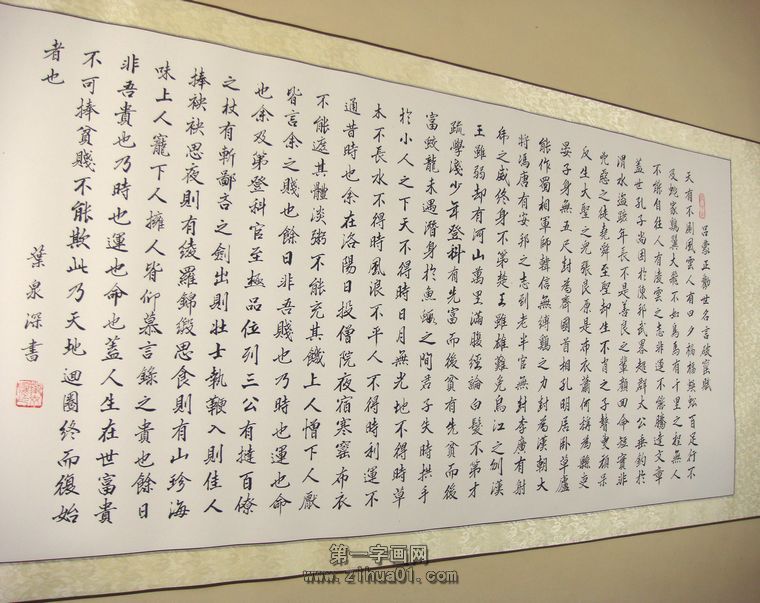 呂蒙正勸世名言破窯賦
天有不測風雲人有旦夕禍福蜈蚣百足行不
及蛇家鷄翼大飛不如鳥馬有千里之程無人
不能自往人有凌雲之志非運不能騰達文章
蓋世孔子尚困於陳邦武畧超群太公垂釣於
渭水盜跖年長不是善良之輩顏回命短實非
兇惡之徒堯舜至聖却生不肖之子瞽叟頑呆
反生大聖之兒張良原是布衣蕭何稱為縣吏
晏子身無五尺封為齊國首相孔明居卧草廬
能作蜀相軍師韓信無縛鷄之力封為漢朝大
將馮唐有安邦之志到老半官無封李廣有射
虎之威終身不第楚王雖雄難免烏江之刎漢
王雖弱却有河山萬里滿腹經綸白髮不第才
疏學淺少年登科有先富而後貧有先貧而後
富蛟龍未遇潛身於魚蝦之間君子失時拱手
於小人之下天不得時日月無光地不得時草
木不長水不得時風浪不平人不得時利運不
通昔時也余在洛陽日投僧院夜宿寒窯布衣
不能遮其體淡粥不能充其饑上人憎下人厭
皆言余之賤也餘曰非吾賤也乃時也運也命
也余及第登科官至極品位列三公有撻百僚
之杖有斬鄙吝之劍出則壯士執鞭入則佳人
捧袂袂思夜則有綾羅錦緞思食則有山珍海
味上人寵下人擁人皆仰慕言錄之貴也餘曰
非吾貴也乃時也運也命也蓋人生在世富貴
不可捧貧賤不能欺此乃天地迴圈終而復始
者也
葉泉深書
第一字画网
www.zihua01.com